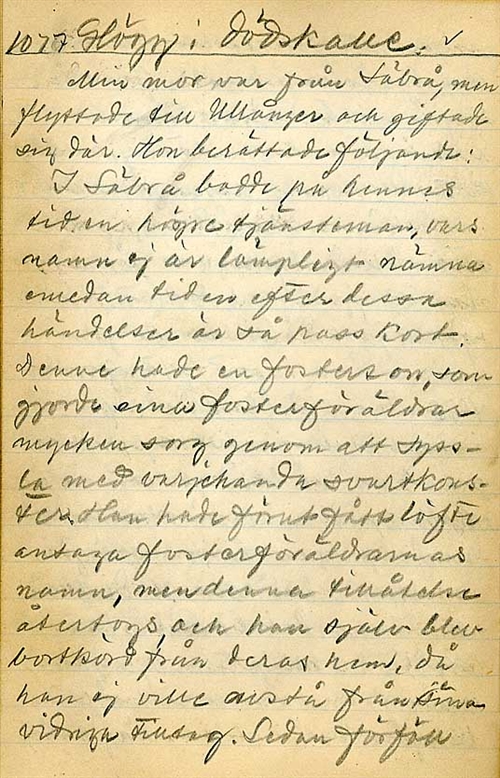 1077 Glögg i dödskalle. ✓
Min mor var från Säbrå, men
flyttade till Ullånger och giftade
sig där. Hon berättade följande:
I Säbrå bodde på hennes
tid en högre tjänsteman, vars
namn ej är lämpligt nämna
emedan tiden efter dessa
händelser är så pass kort.
Denne hade en fosterson, som
gjorde sina fosterföräldrar
mycken sorg genom att syss-
la med varjehanda svartkons-
ter. Han hade förut fått löfte
antaga fosterföräldrarnas
namn, men denna tillåtelse
återtogs och han själv blev
bortkörd från deras hem, då
han ej ville avstå från sina
vidriga tilltag. Sedan förföll